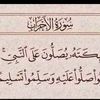 سُورَةُ الأَحْزَابِ
يُصَلُّونَ عَلَى ٱلنَّبِيِّ
صَلُّوا۟ عَلَيْهِ وَسَلِّمُوا۟ تَسْلِيمًا